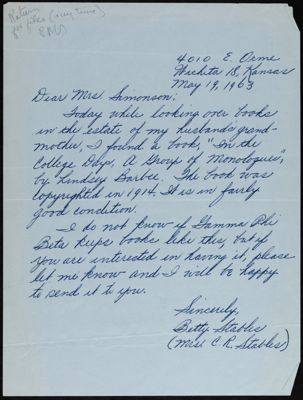 Return
for files (any time)
4010 E. Orme
Wichita 18, Kansas
May 19, 1963
Dear Mrs. Simonson:
Today while looking over books
in the estate of my husband's grand-
mother, I found a book, "In the
College Days, A Group of Monologues",
by Lindsey Barbee. The book was
copyrighted in 1914. It is in fairly
good condition.
I do not know if Gamma Phi
Beta keeps books like this, but if
you are interested in having it, please
let me know and I will be happy
to send it to you.
Sincerely,
Betty Stables
(Mrs. C. R. Stables)